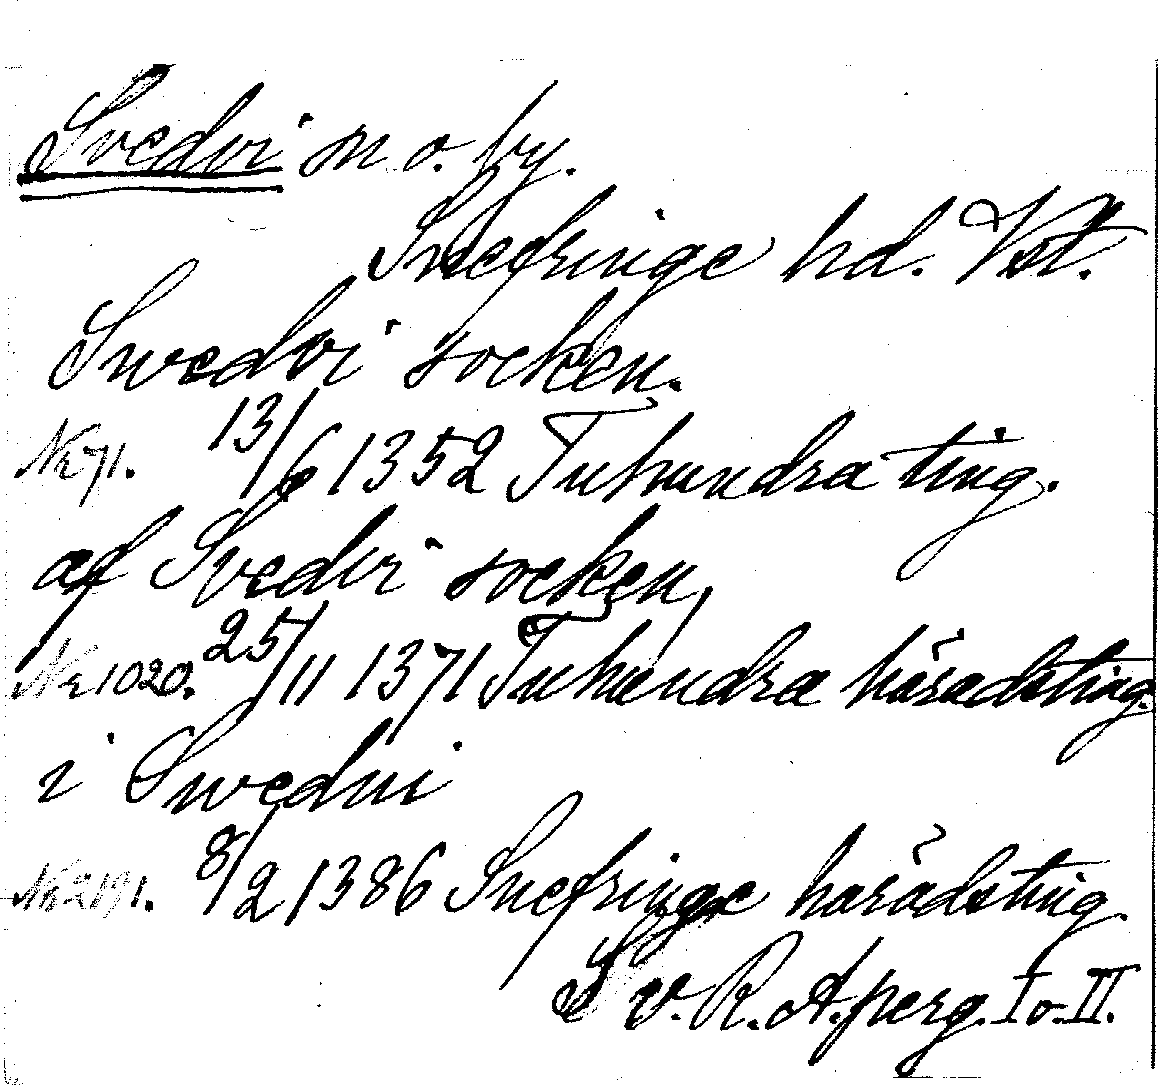 Svedvi sn o. by.
Snefringe hd. Vstl.
Swedvi socken.
Nr 71. 13/6 1352 Tuhundra ting.
af Svedvi socken,
Nr 1020. 25/11 1371 Tuhundra häradsting.
i Swedui
Nr 2191. 8/2 1386 Snefringe häradsting.
Sv. R. A. perg. I o. II.